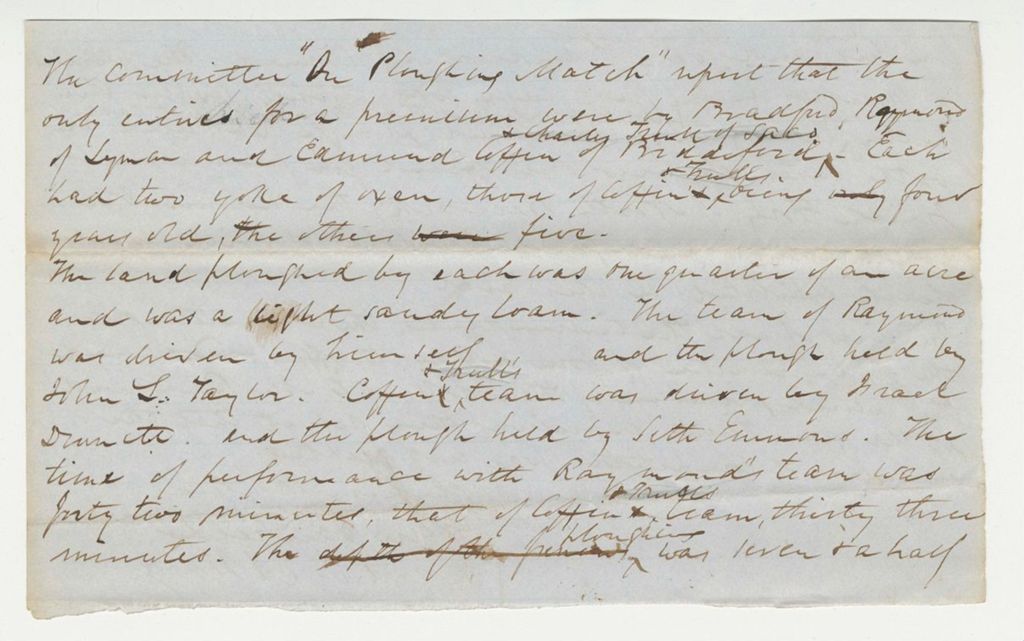 The Committee "On Ploughing Match" report that the
only entries for a premium were by Bradford Raymond
& Charles Trull of Saco
of Lyman and Edmund Coffin of Biddeford, - Each
& Trulls
had two yoke of oxen, those of Coffin, being only four
years old, the others were five.
The land ploughed by each was one quarter of an acre
and was a light sandy loam. The team of Raymond
was driven by himself and the plough held by
& Trull's
John L. Taylor. Coffin team was driven by Israel
Dennett. and the plough held by Seth Emmons. The
time of performance with Raymond's team was
& Trulls
forty two minutes, that of Coffin team, thirty three
ploughing
minutes. The depth of the furrow was seven & a half